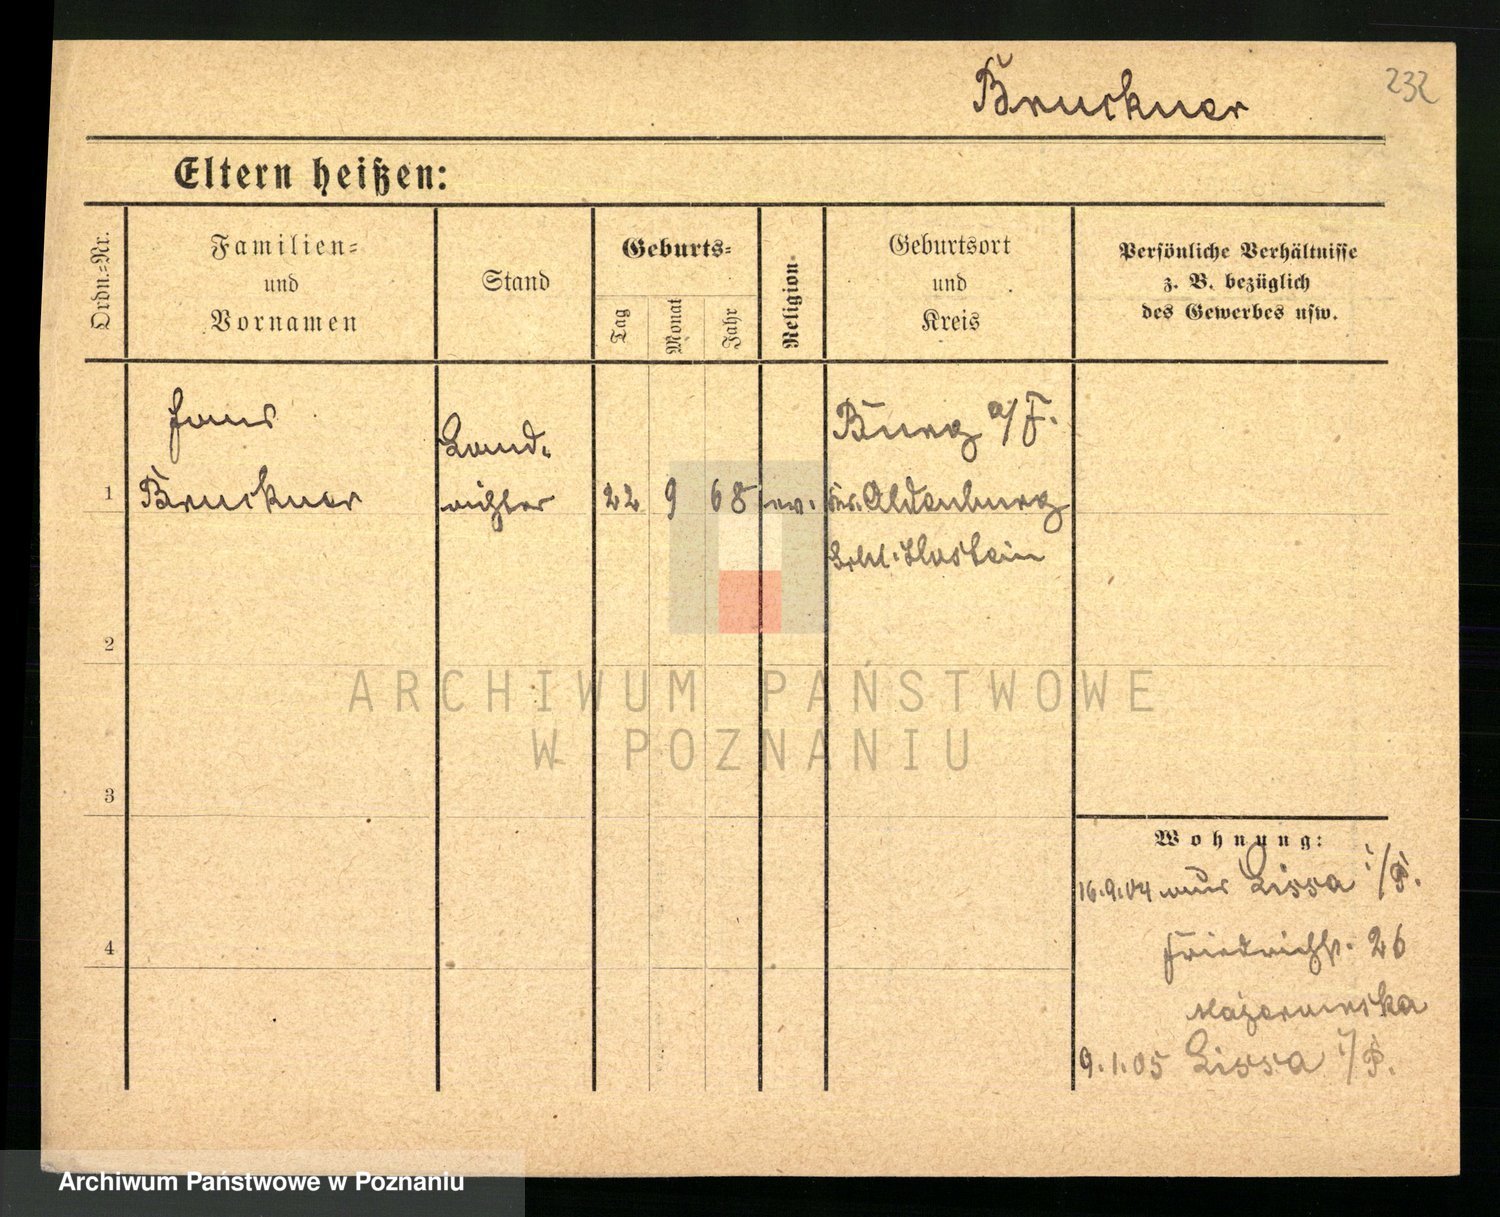 Bruckner
232
Eltern heißen:
Ordn.-Nr.
Familien-
und
Vornamen
Stand
Geburts-
Tag
Monat
Jahr
Religion
Geburtsort
und
Kreis
Persönliche Verhältnisse
z. B. bezüglich
des Gewerbes usw.
1
Hans
Bruckner
Land-
richter
22
9
68
ev.
Burg a/F.
Kr. Oldenburg
Schl. Holstein
2
3
4
Wohnung:
16.9.04 aus Lissa i/P.
Friedrichstr. 26
9.1.05 Lissa i/P.
ARCHIWUM PAŃSTWOWE
W POZNANIU
Archiwum Państwowe w Poznaniu